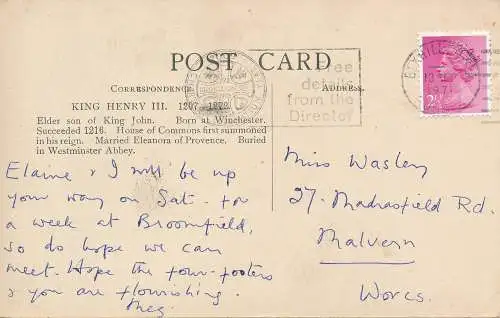 POST CARD
CORRESPONDENCE.
ADDRESS.
KING HENRY III. 1207-1272.
Elder son of King John. Born at Winchester.
Succeeded 1216. House of Commons first summoned
in his reign. Married Eleanora of Provence. Buried
in Westminster Abbey.
Elaine & I will be up
your way on Sat. for
a week at Broomfield,
so do hope we can
meet. Hope the four-footers
& you are flourishing.
Meg.
free
details
from the
Director
1971
2½
Miss Wasley
27. Madrasfield Rd.
Malvern
Worcs.